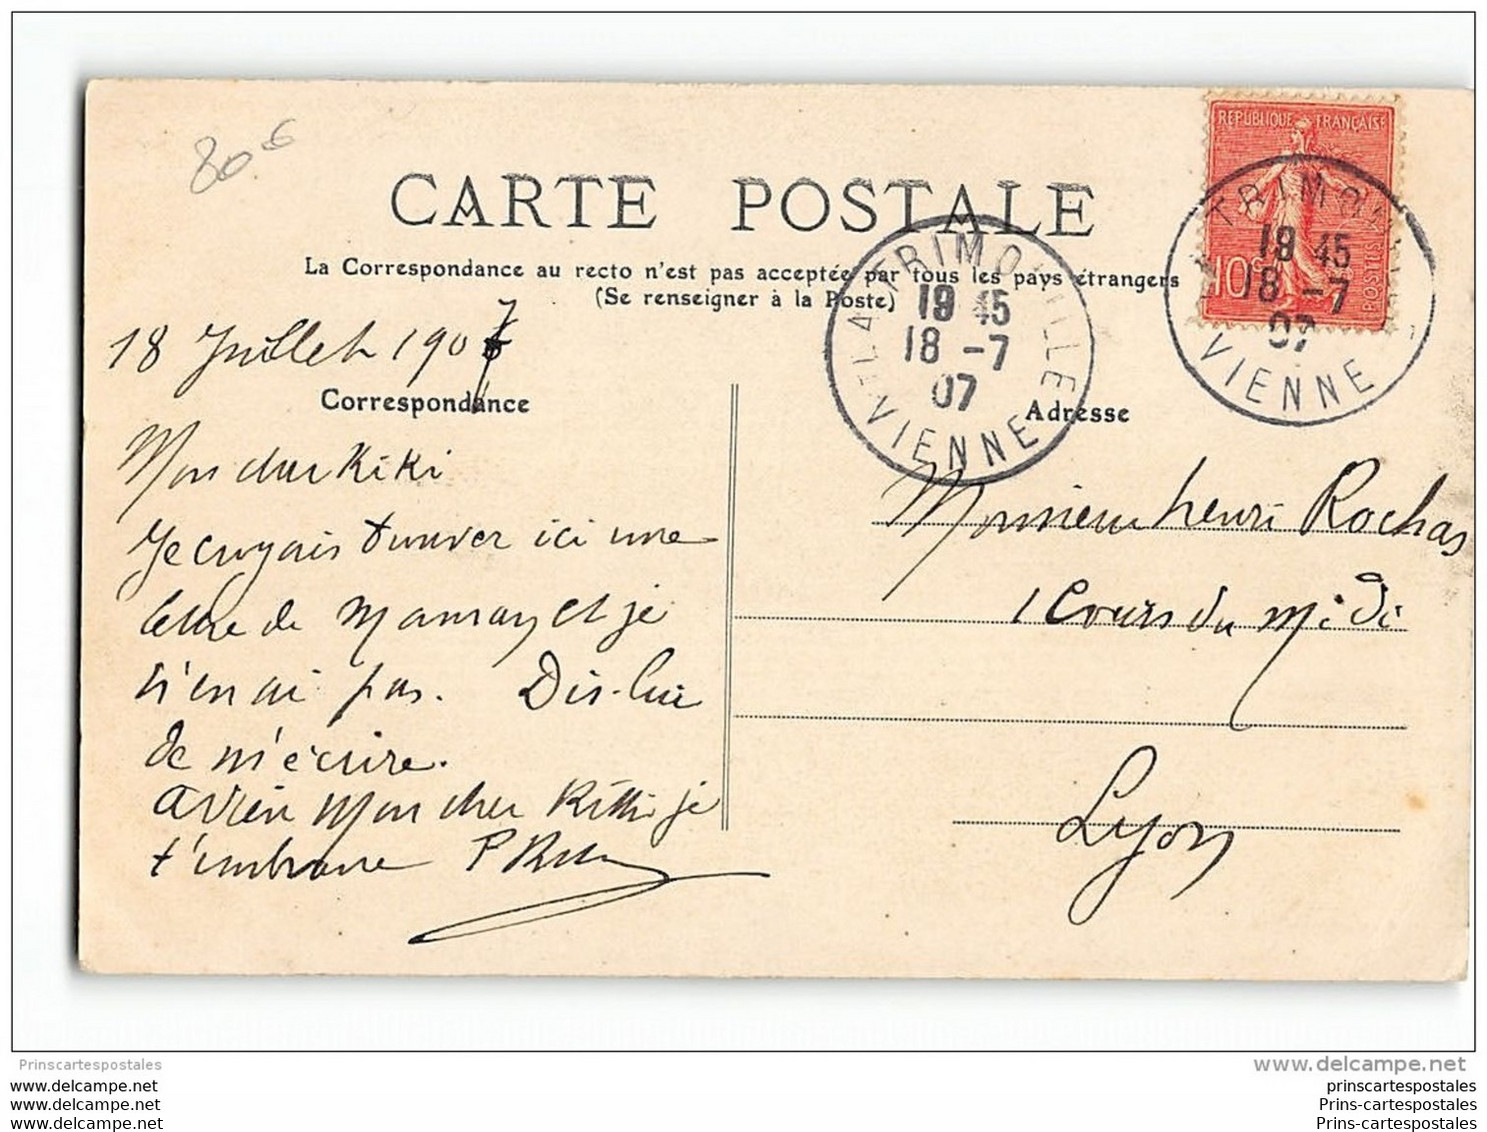 80 €
REPUBLIQUE FRANÇAISE
10c
POSTES
CARTE POSTALE
La Correspondance au recto n'est pas acceptée par tous les pays étrangers
(Se renseigner à la Poste)
LA TRIMOUILLE
19 45
18 -7
07
VIENNE
TRIMOUILLE
19 45
18 -7
07
VIENNE
18 Juillet 1907
Correspondance
Adresse
Mon cher Kiki
Je croyais trouver ici une
lettre de Maman et je
n'en ai pas. Dis-lui
de m'écrire.
à rien Mon cher Kikki je
t'embrasse
Monsieur henri Rochas
1 Cours du midi
Lyon
Prinscartespostales
www.delcampe.net
www.delcampe.net
prinscartespostales
www.delcampe.net
Prins-cartespostales
www.delcampe.net
Prins-cartespostales